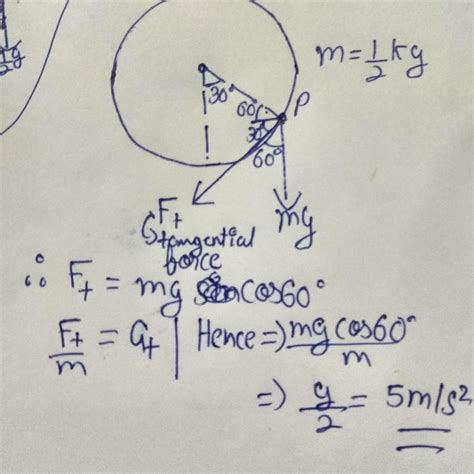 m = 1/2 kg
30°
60°
P
30°
60°
Ft
mg
tangential
force
∴ Ft = mg cos60°
Ft/m = at | Hence ⇒ mg cos60°/m
⇒ g/2 = 5m/s²